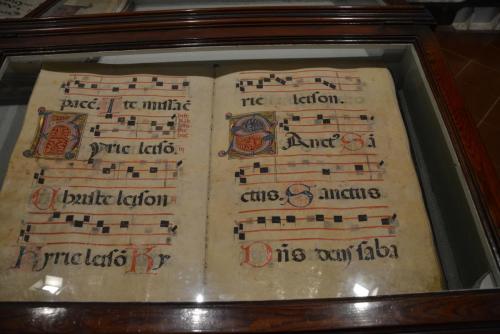 pacē. Ite missa ē
Kyrie leisō
Christe leison
Kyrie leisō Ky
rie leison.
Sanctꝰ Sā
ctus. Sanctus
Dn̄s deus saba